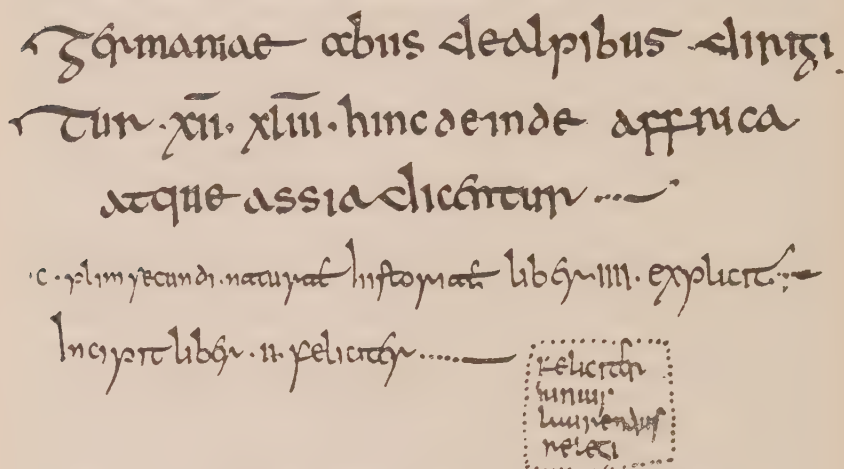 Germaniae abiis dealpibus dirigi
tur · xii · xliii · hinc deinde affrica
atque assia dicentur
· c · plini secundi · natural historiae liber iiii · explicit
Incipit liber · ii · feliciter
feliciter
iunius
laurentius
relegi